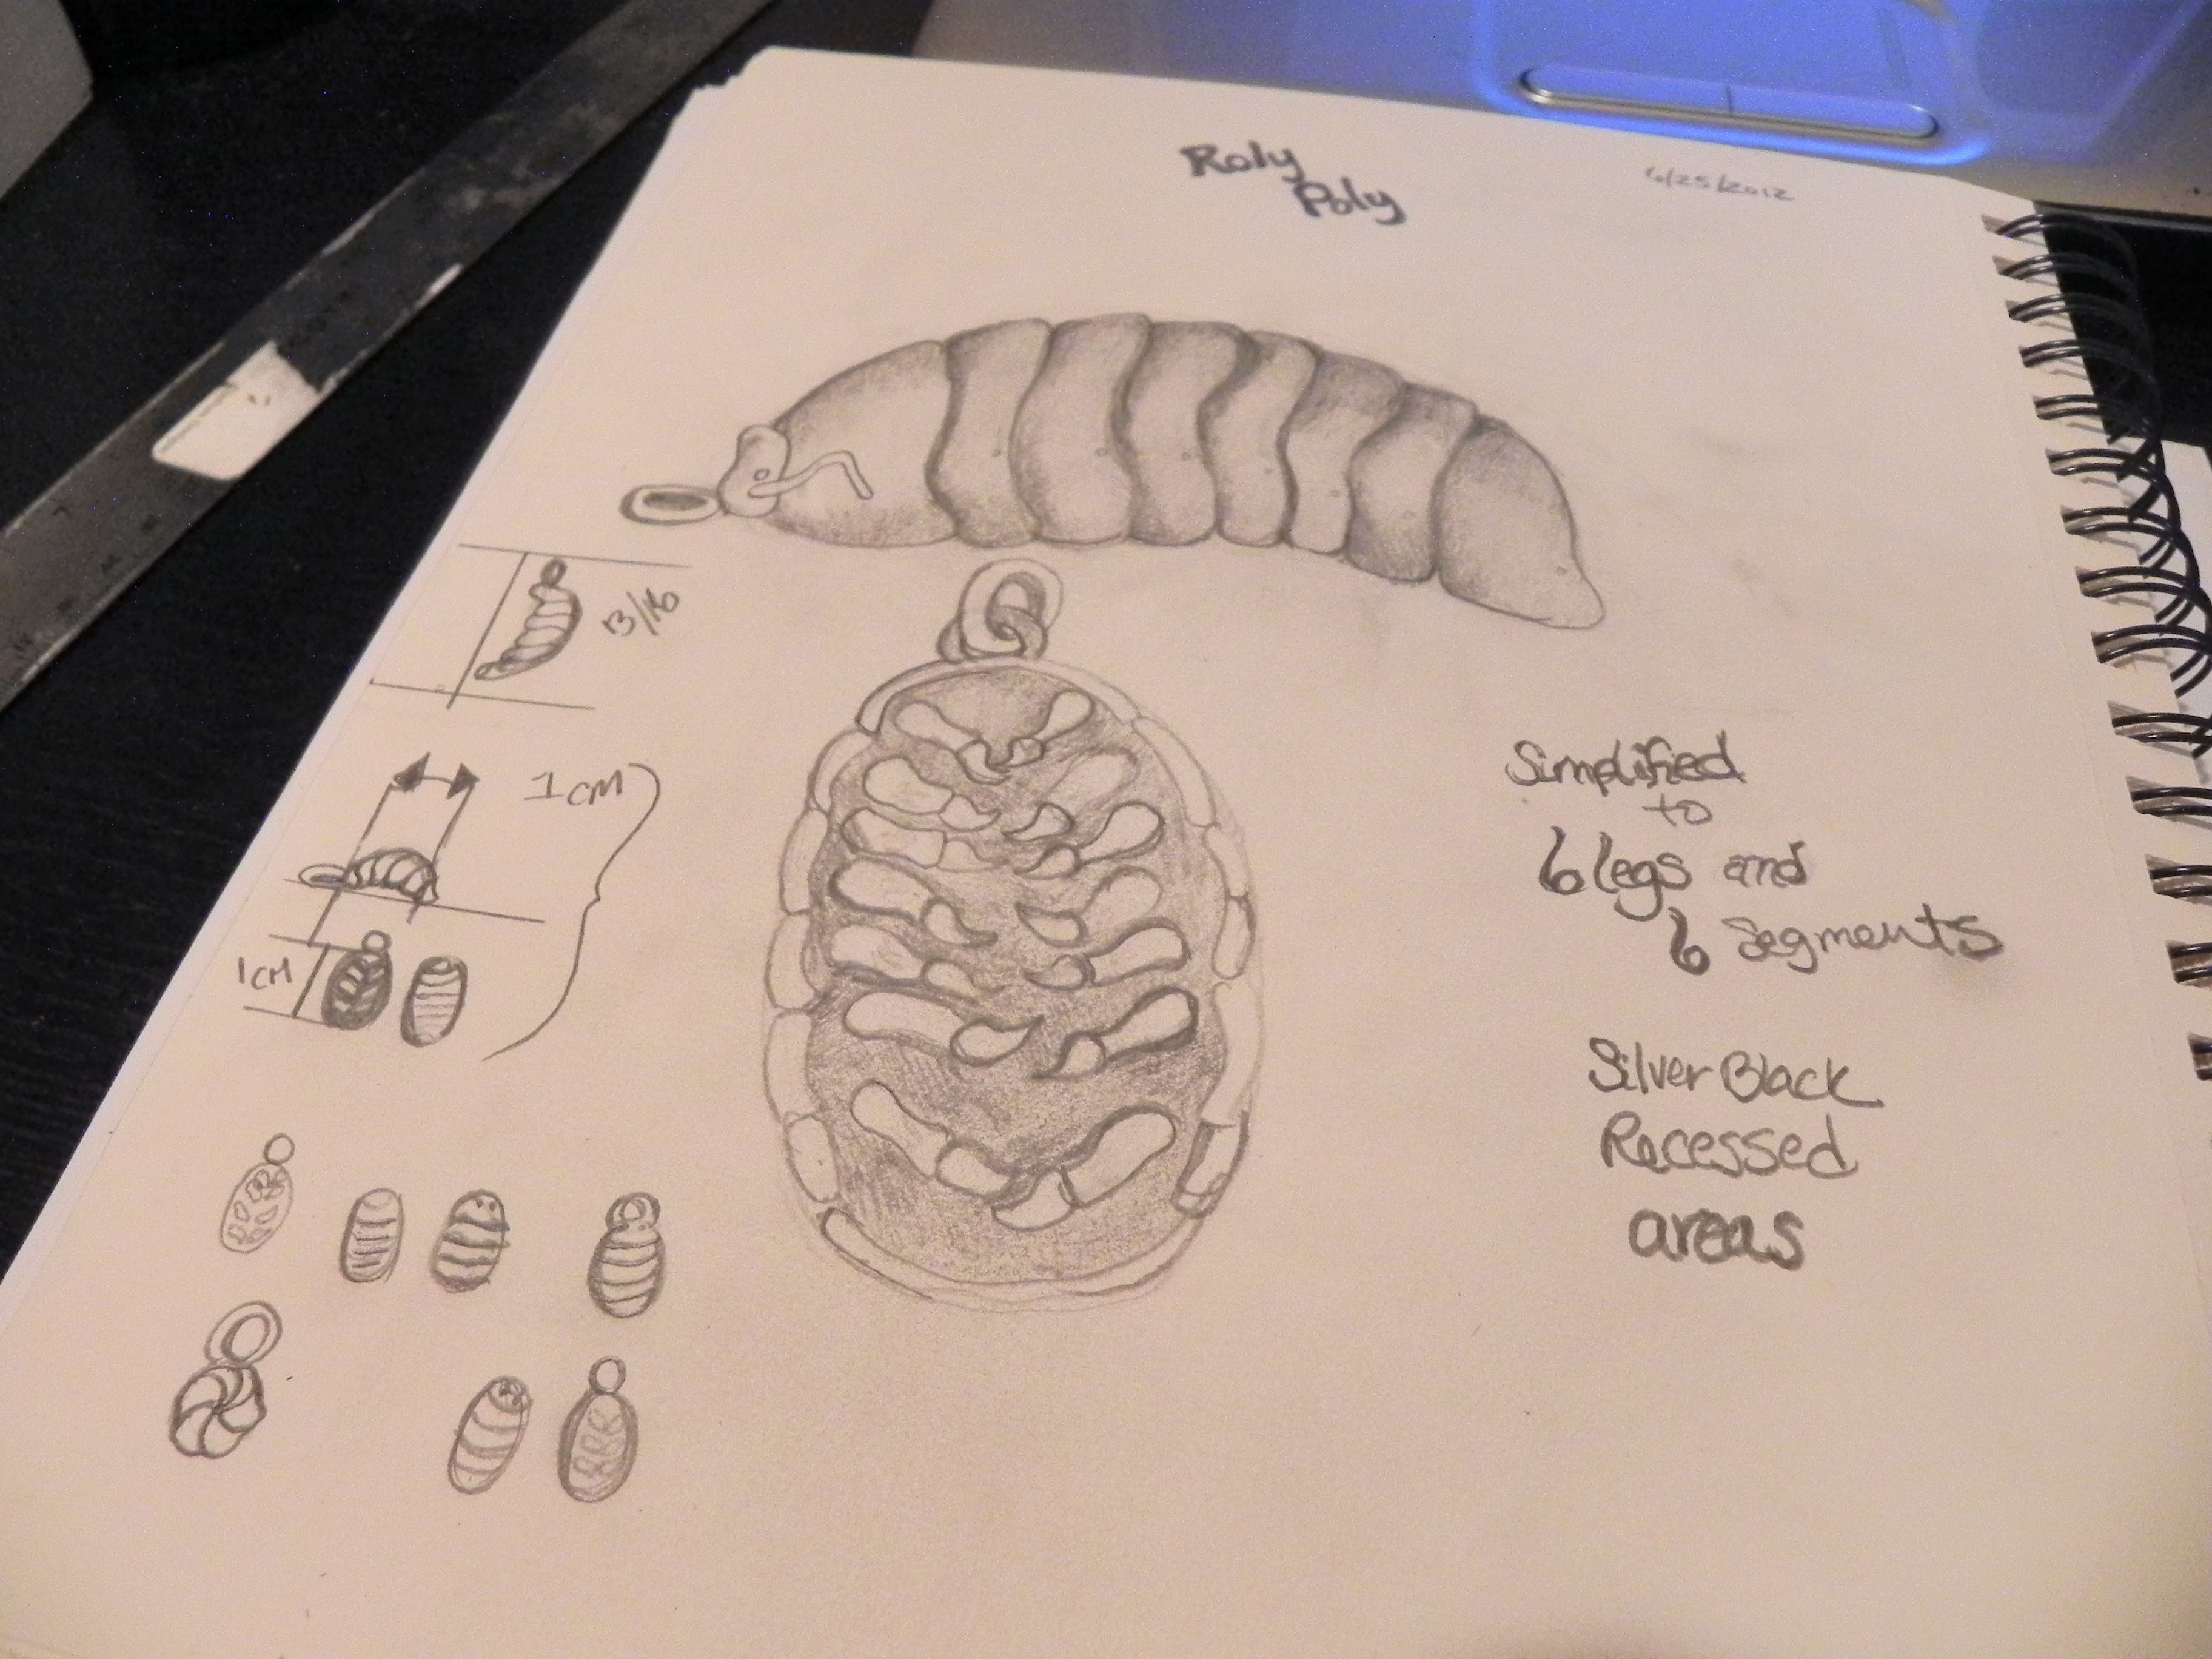 Roly
Poly
6/25/2012
13/16
1cm
1cm
Simplified
to
6 legs and
6 Segments
Silver Black
Recessed
areas